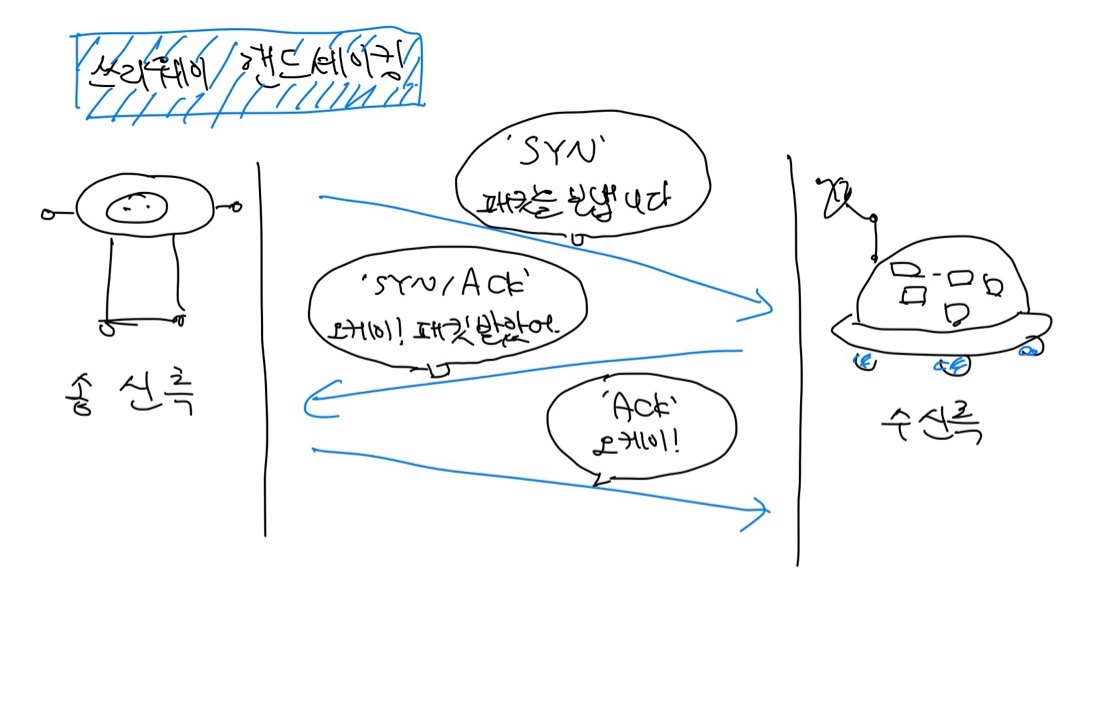 쓰리웨이 핸드셰이킹
'SYN'
패킷을 보냅니다
'SYN/ACK'
오케이! 패킷 받았어.
'ACK'
오케이!
송신측
수신측